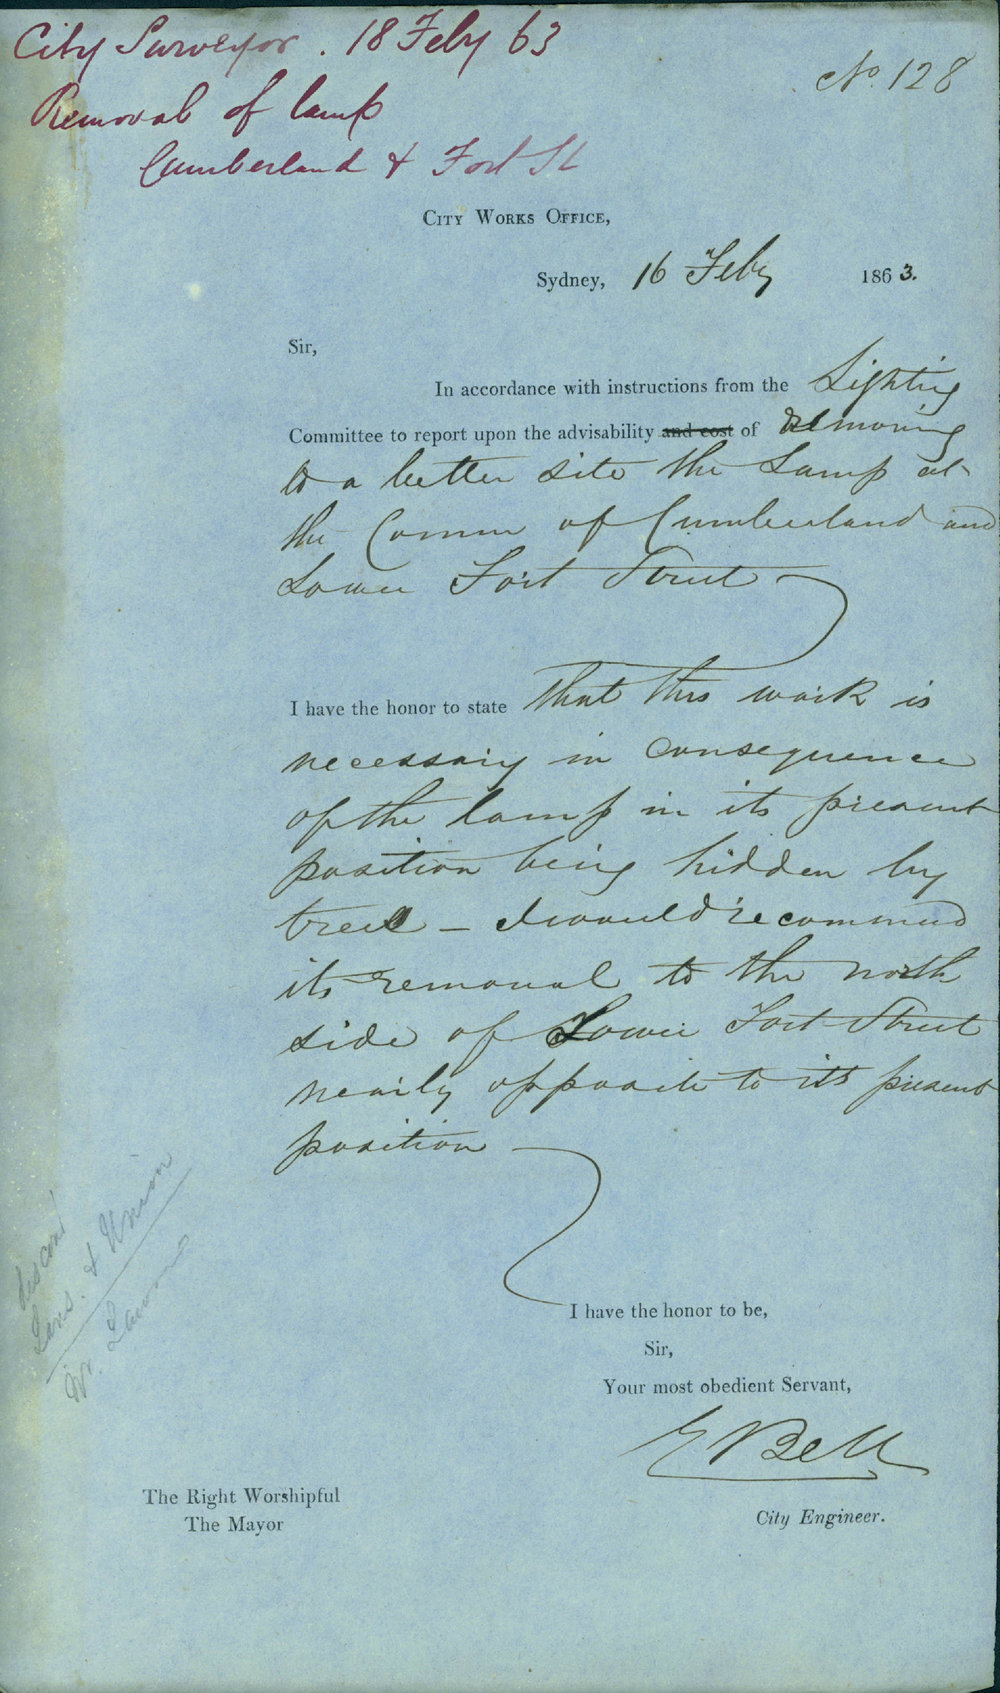 City Surveyor. 18 Feby 63
No. 128
Removal of lamp
Cumberland & Fort St
City Works Office,
Sydney, 16 Feby 1863.
Sir,
In accordance with instructions from the Lighting
Committee to report upon the advisability and cost of Removing
to a better site the Lamp at
the Corner of Cumberland and
Lower Fort Street
I have the honor to state that this work is
necessary in consequence
of the lamp in its present
position being hidden by
trees – I would recommend
its removal to the north
side of Lower Fort Street
nearly opposite to its present
position
& Union
I have the honor to be,
Sir,
Your most obedient Servant,
E Bell
City Engineer.
The Right Worshipful
The Mayor